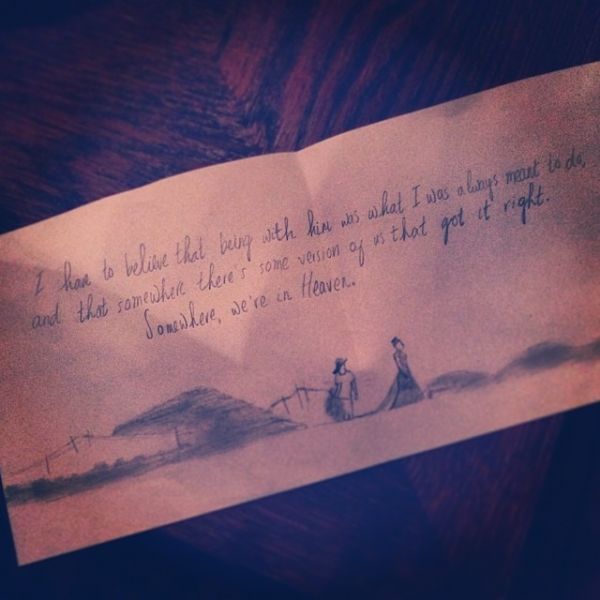 I have to believe that being with him was what I was always meant to do,
and that somewhere there's some version of us that got it right.
Somewhere, we're in Heaven.